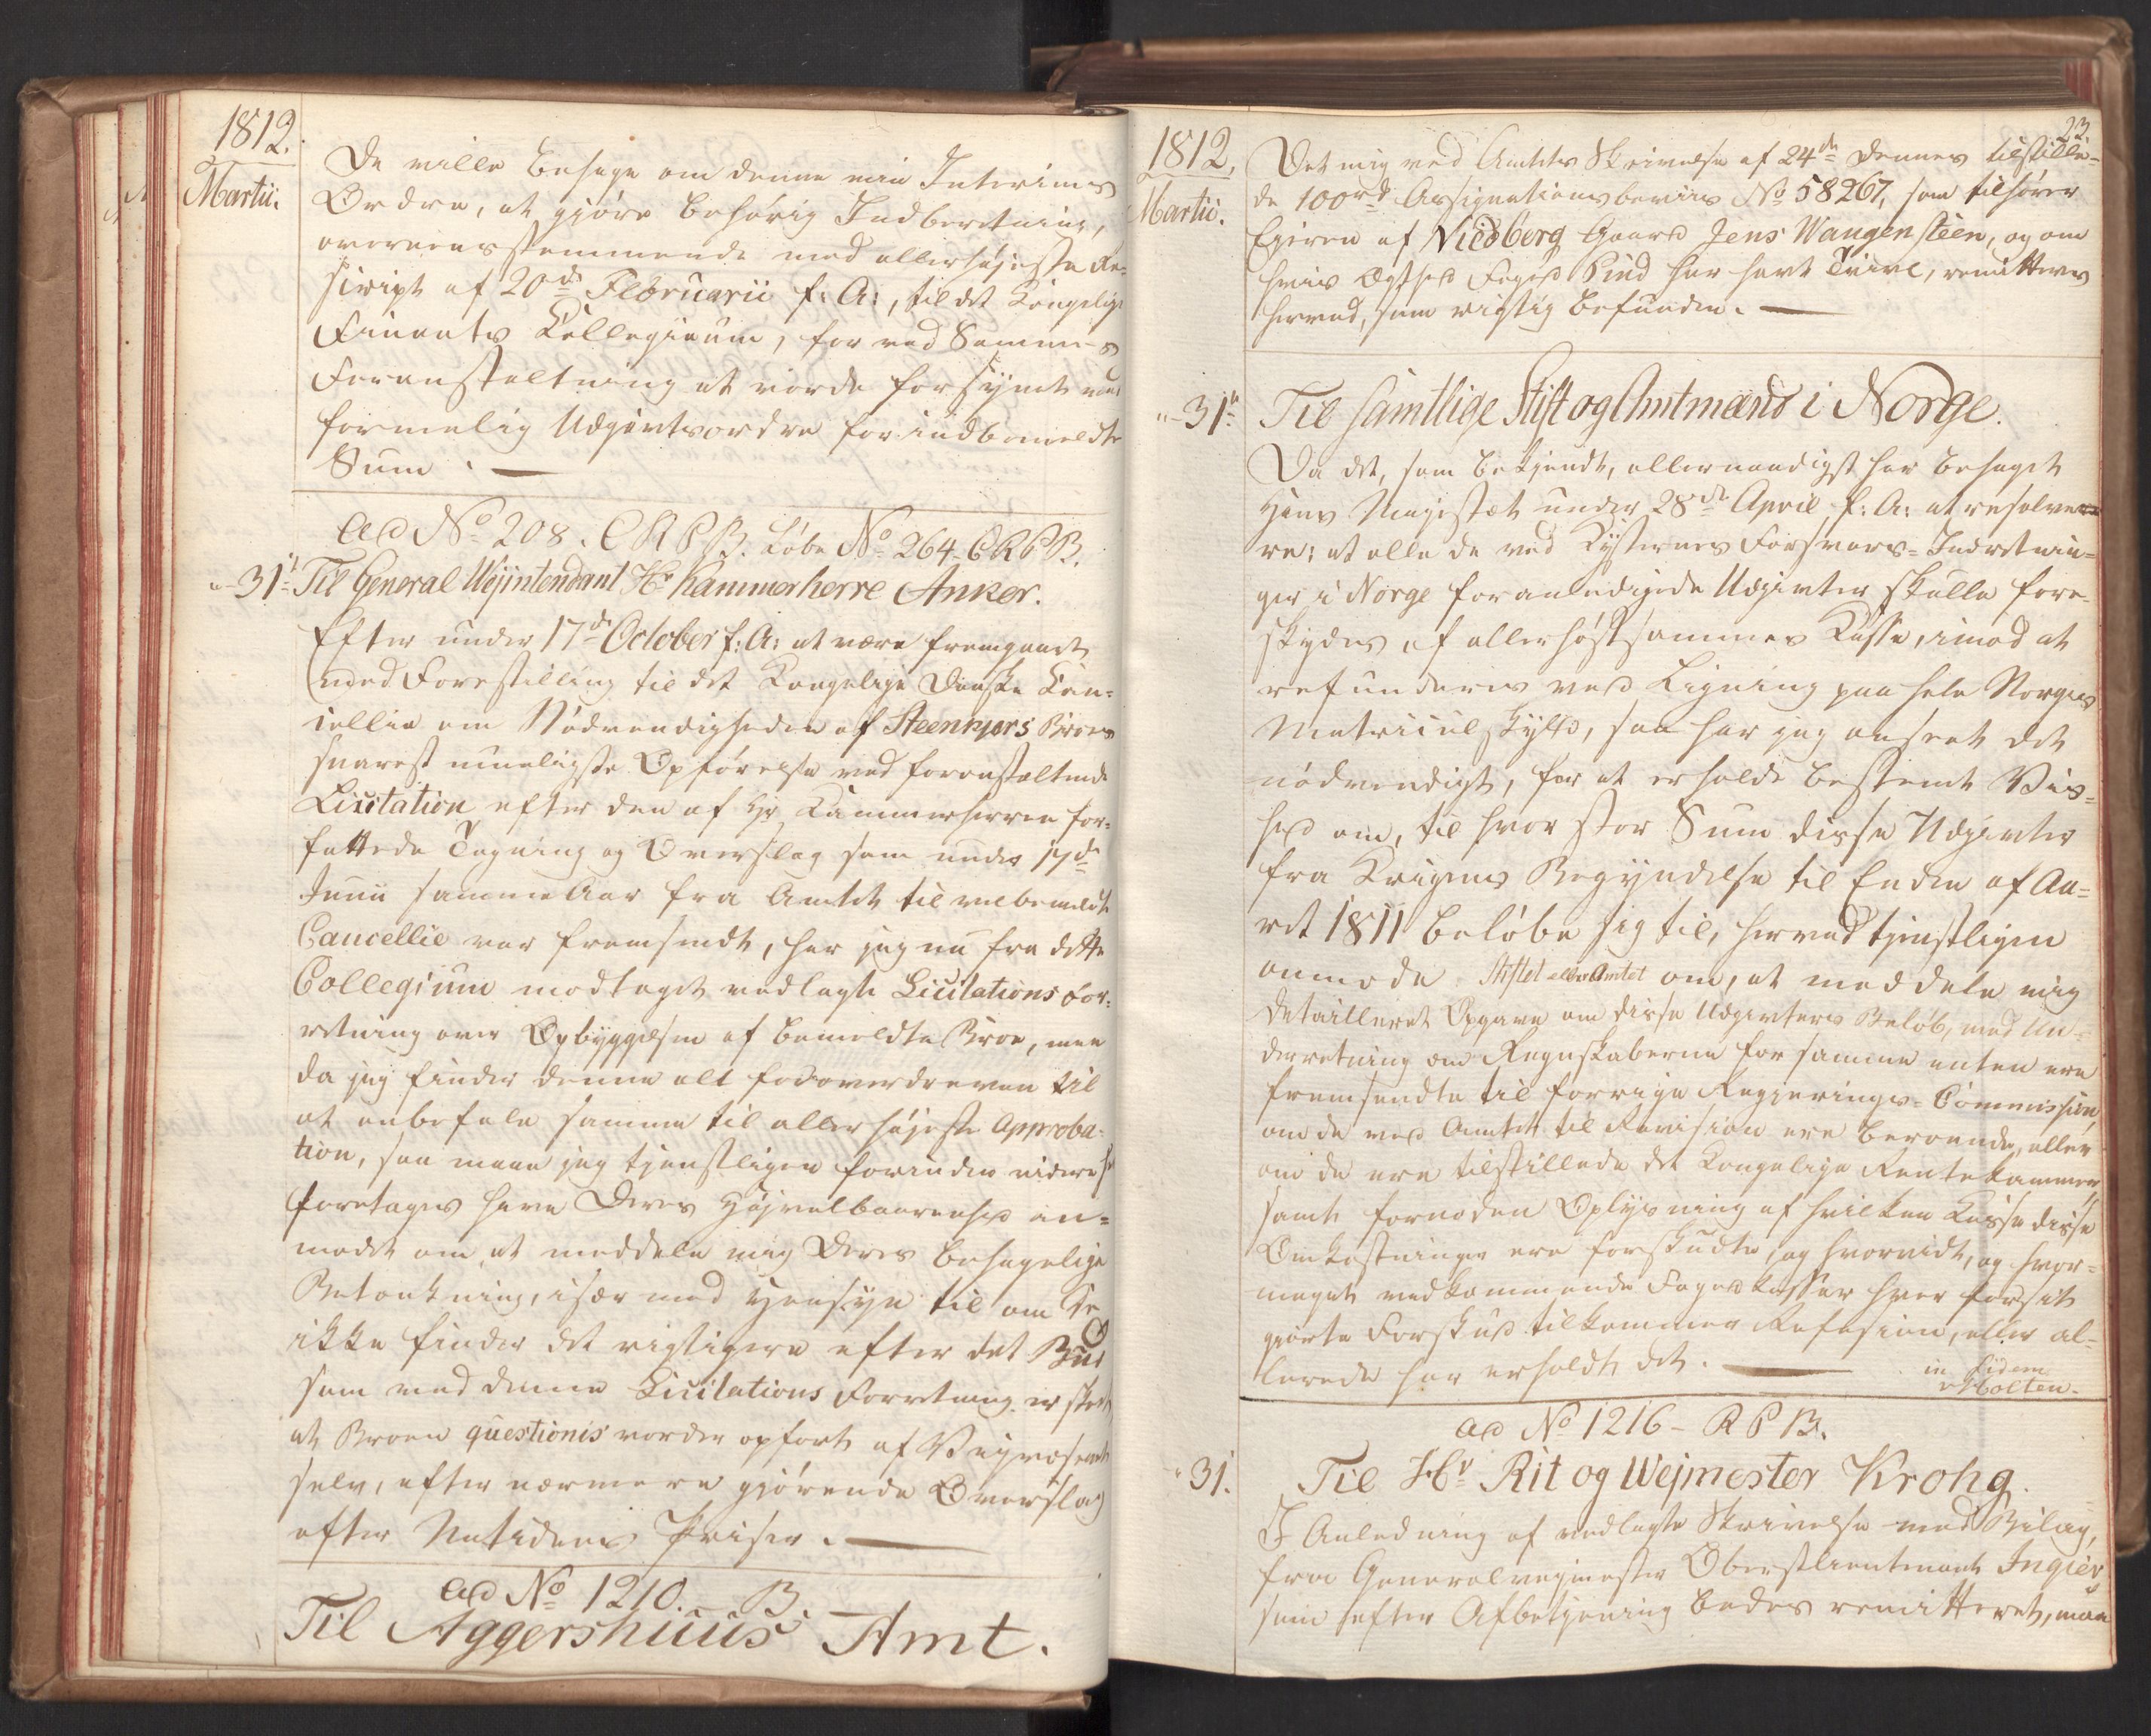 1812.
Martii.
De ville behage om denne min Interims
Ordre, at gjøre behørig Indberetning,
overeensstemmende med allerhøjeste Re-
script af 20de Februarii f: A:, til det Kongelige
Finants Collegium, for ved Sammes
Foranstaltning at vorde forsynet med
formelig Udgivtsordre for indbemeldte
Sum.
Ad No 208. C R P B. Løbe No 264 C R P B.
"-31te Til General Vejintendant Hr Kammerherre Anker.
Efter under 17de October f: A: at være fremgaaet
med Forestilling til det Kongelige Danske Can-
cellie om Nødvendigheden af Steenkjers Broes
snarest mueligste Opførelse ved foranstaltende
Licitation efter den af Hr Kammerherren for-
fattede Tegning og Overslag som under 17de
Junii samme Aar fra Amtet til velbemeldte
Cancellie var fremsendt, har jeg nu fra dette
Collegium modtaget vedlagte Licitationsfor-
retning over Opbyggelsen af bemeldte Broe, men
da jeg finder denne alt for overdreven til
at anbefale samme til allerhøjeste Approba-
tion, saa maae jeg tjenstligen forinden videre
foretages have Deres Højvelbaarenhed an-
modet om at meddele mig Deres behagelige
Betænkning, især med Hensyn til om De
ikke finder det rigtigere efter det Bud
som ved denne Licitations Forretning er skeet,
at Broen questionis vorder opført af Vejvæsenet
selv, efter nærmere gjørende Overslag
efter Nutidens Priser.
Ad No 1210. B.
Til Aggershuus Amt.
23.
1812.
Martii.
Det mig ved Amtets Skrivelse af 24de dennes tilstille-
de 100rd Assignationsbeviis No 58267, som tilhører
Ejeren af Viedberg Gaard Jens Wangensteen, og om
hvis Ægthed Foged Pind har havt Tvivl, remitteres
herved, som rigtig befunden.
"-31te Til samtlige Stift og Amtmænd i Norge.
Da det, som bekjendt, allernaadigst har behaget
Hans Majestæt under 28de April f: A: at resolve-
re: at alle de ved Kysternes Forsvars-Indretnin-
ger i Norge foranledigede Udgivter skulle fore-
skydes af allerhøstsammes Kasse, imod at
refunderes ved Ligning paa hele Norges
Matricul Skyld, saa har jeg anseet det
nødvendigt, for at erholde bestemt Vis-
hed om, til hvor stor Sum disse Udgivter
fra Krigens Begyndelse til Enden af Aa-
ret 1811 beløbe sig til, herved tjenstligen
anmode Stiftet eller Amtet om, at meddele mig
detailleret Opgave om disse Udgivters Beløb, med Un-
derretning om Regnskaberne for samme enten ere
fremsendte til forrige Regjerings-Commission,
om de ved Amtet til Revision ere beroende, eller
om de ere tilstillede det Kongelige Rentekammer,
samt fornøden Oplysning af hvilken Kasse disse
Omkostninger ere forskudte, og hvorvidt, og hvor-
meget vedkommende Fogedkasser hver for sit
gjorte Forskud tilkommer Refusion, eller al-
lerede har erholdt det.
in fidem
Molten.
ad No 1216 - R P B.
"31. Til Hr Rit og Vejmester Krohg.
I Anledning af vedlagte Skrivelse med Bilag,
fra Generalvejmester Oberstlieutenant Ingier
som efter Afbetjening bedes remitteret, maa